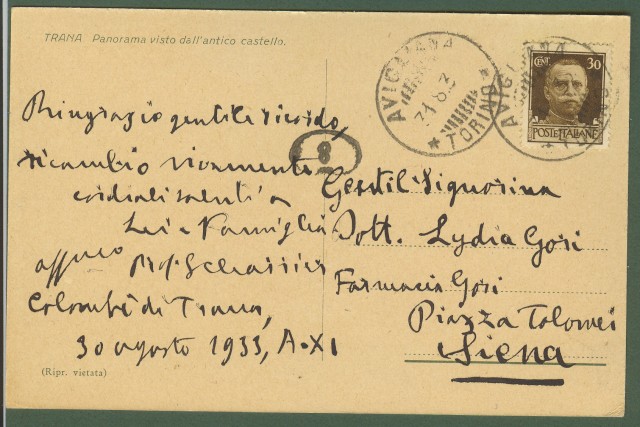 TRANA Panorama visto dall'antico castello.
Ringrazio gentile ricordo,
ricambio vivamente
cordiali saluti a
Lei e Famiglia
Prof.
Colombé di Trana,
30 agosto 1933, A. XI
(Ripr. vietata)
8
AVIGLIANA
31.8.3
* TORINO *
AVIGLIANA
CENT. 30
POSTE ITALIANE
Gentil Signorina
Dott. Lydia Gori
Farmacia Gori
Piazza Tolomei
Siena